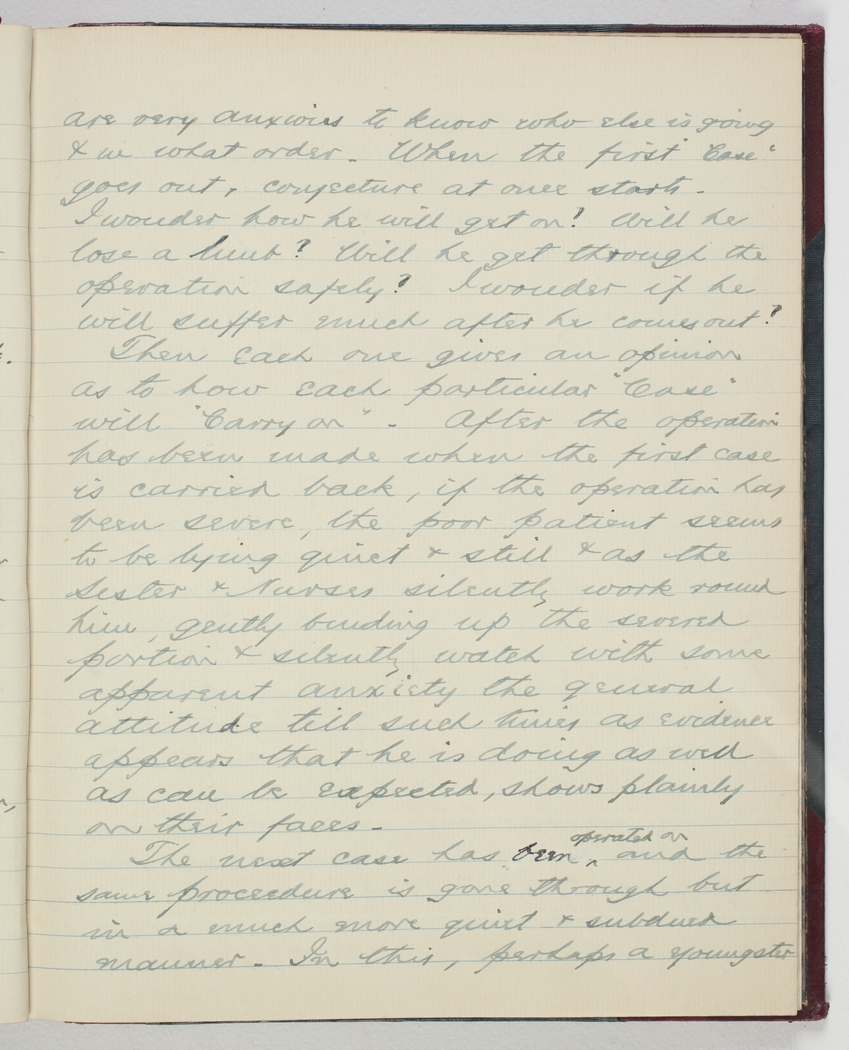 are very anxious to know who else is going
& in what order. When the first "Case"
goes out, conjecture at once starts.
I wonder how he will get on! Will he
lose a limb? Will he get through the
operation safely? I wonder if he
will suffer much after he comes out?
Then Each one gives an opinion
as to how Each particular "Case"
will "Carry on". After the operation
has been made when the first case
is carried back, if the operation has
been severe, the poor patient seems
to be lying quiet & still & as the
Sister & Nurses silently work round
him, gently binding up the severed
portion & silently watch with some
apparent anxiety the general
attitude till such times as evidence
appears that he is doing as well
as can be Expected, shows plainly
on their faces.
operated on
The next case has been ^ and the
same proceedure is gone through but
in a much more quiet & subdued
manner. In this, perhaps a youngster